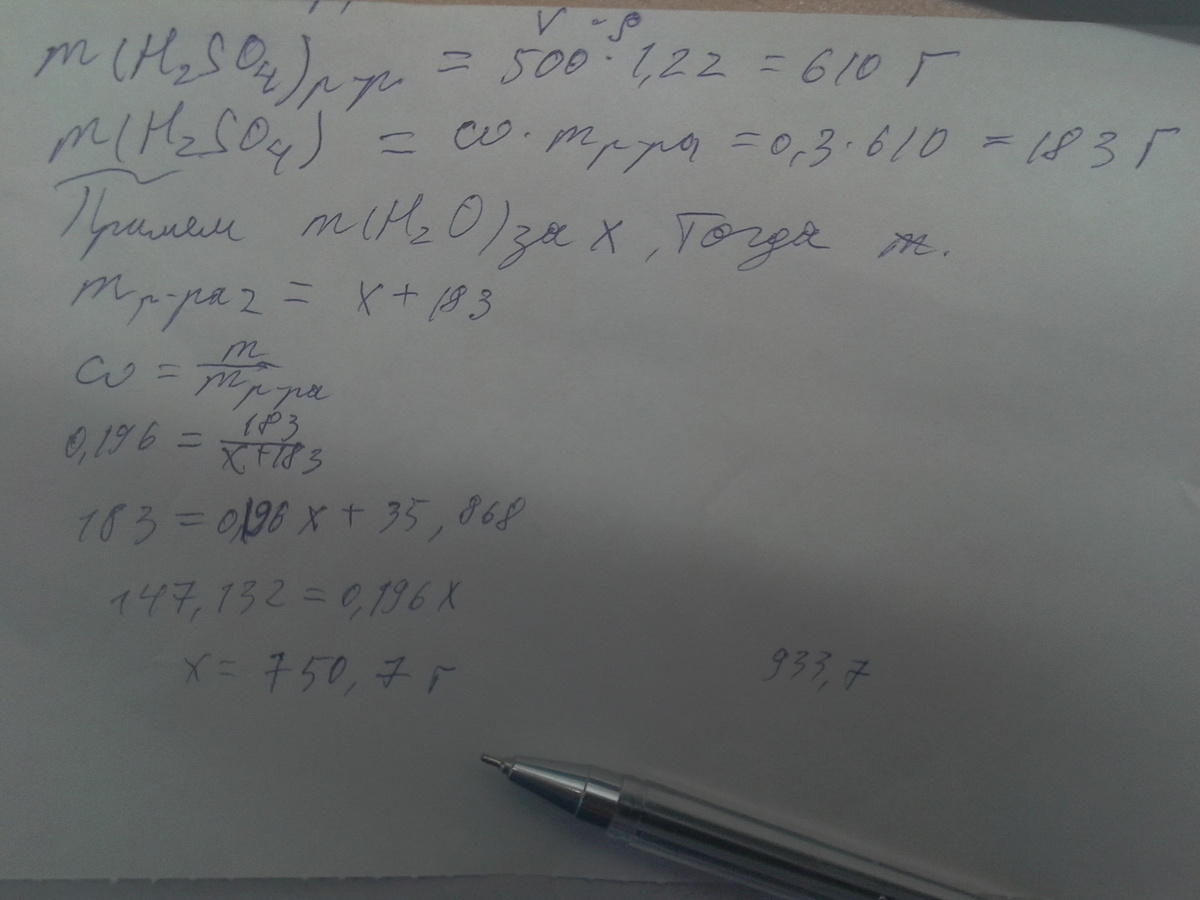 V · ρ
m(H₂SO₄)р-р = 500 · 1,22 = 610 Г
m(H₂SO₄) = ω · mр-ра = 0,3 · 610 = 183 Г
Примем m(H₂O) за X, Тогда
mр-ра 2 = X + 183
ω = m / mр-ра
0,196 = 183 / X + 183
183 = 0,196 X + 35,868
147,132 = 0,196 X
X = 750,7 г
933,7